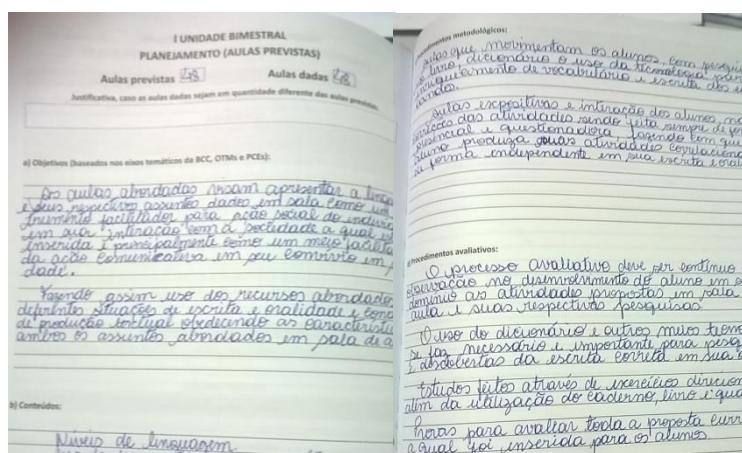 I UNIDADE BIMESTRAL
PLANEJAMENTO (AULAS PREVISTAS)
Aulas previstas 48 Aulas dadas 48
Justificativa, caso as aulas dadas sejam em quantidade diferente das aulas previstas
a) Objetivos (baseados nos eixos temáticos da BCC, OTMs e PCEs):
As aulas abordadas visam apresentar a
e seus respectivos assuntos dados em sala como um
trumento facilitador para ação social do
em sua interação com a sociedade a qual
inserida e principalmente como um meio
da ação comunicativa em seu convívio em
dade.
Fazendo assim uso dos recursos
diferentes situações de escrita e oralidade e
de produção textual obedecendo as
ambos os assuntos abordados em sala de a
b) Conteúdos:
Níveis de linguagem
metodológicos:
Aulas que movimentam os alunos, com
livro, dicionário o uso da tecnologia
de vocabulário e escrita dos
Aulas expositivas e interação dos alunos,
correção das atividades sendo feita sempre de
e questionadora fazendo com que
aluno produza suas atividades
forma independente em sua escrita e
Procedimentos avaliativos:
O processo avaliativo deve ser contínuo
observação no desenvolvimento do aluno em
domínio as atividades propostas em sala
aula e suas respectivas pesquisas
O uso do dicionário e outros meios
se faz necessário e importante para
descobertas da escrita correta em sua
Estudos feitos através de exercícios
além da utilização do caderno, livro e
Provas para avaliar toda a proposta
a qual foi inserida para os alunos